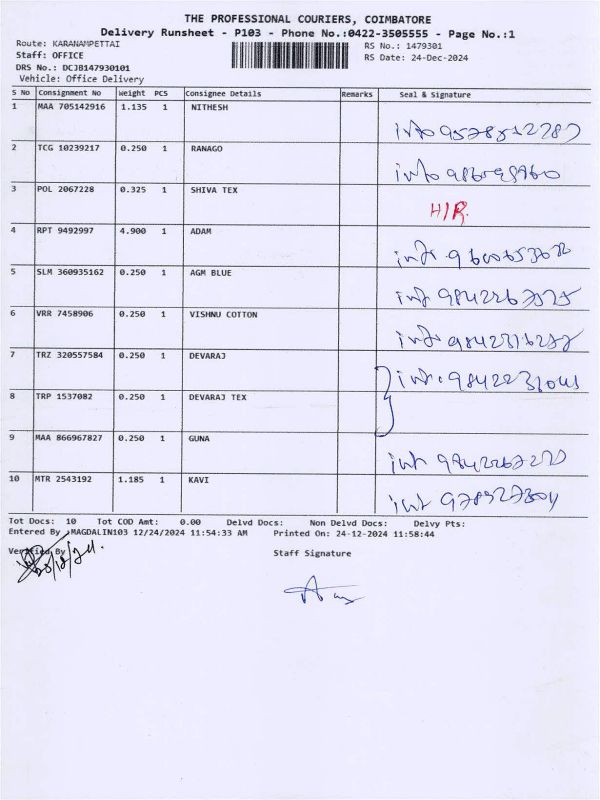 THE PROFESSIONAL COURIERS, COIMBATORE
Delivery Runsheet - P103 - Phone No.:0422-3505555 - Page No.:1
Route: KARANAMPETTAI RS No.: 1479301
Staff: OFFICE RS Date: 24-Dec-2024
DRS No.: DCJB147930101
Vehicle: Office Delivery
S No Consignment No Weight PCS Consignee Details Remarks Seal & Signature
1 MAA 705142916 1.135 1 NITHESH
2 TCG 10239217 0.250 1 RANAGO
3 POL 2067228 0.325 1 SHIVA TEX
H/R.
4 RPT 9492997 4.900 1 ADAM
5 SLM 360935162 0.250 1 AGM BLUE
6 VRR 7458906 0.250 1 VISHNU COTTON
7 TRZ 320557584 0.250 1 DEVARAJ
8 TRP 1537082 0.250 1 DEVARAJ TEX
9 MAA 866967827 0.250 1 GUNA
10 MTR 2543192 1.185 1 KAVI
Tot Docs: 10 Tot COD Amt: 0.00 Delvd Docs: Non Delvd Docs: Delvy Pts:
Entered By MAGDALIN103 12/24/2024 11:54:33 AM Printed On: 24-12-2024 11:58:44
Verified By Staff Signature